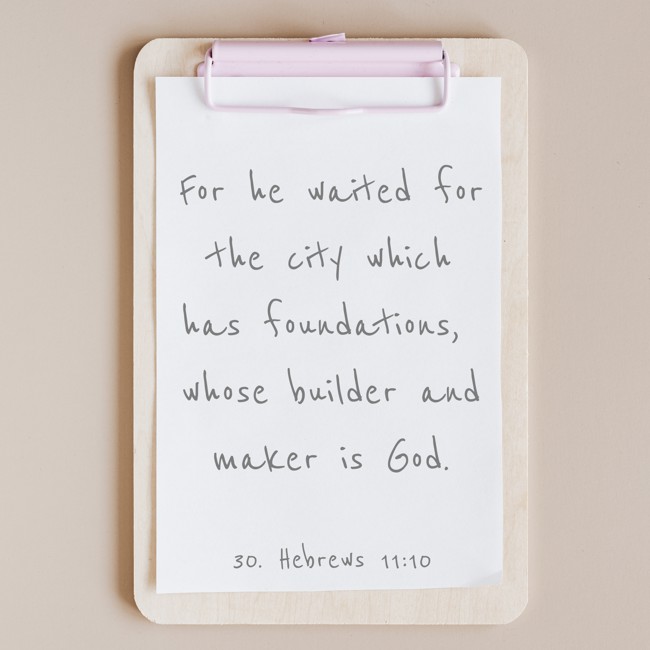 For he waited for
the city which
has foundations,
whose builder and
maker is God.
30. Hebrews 11:10